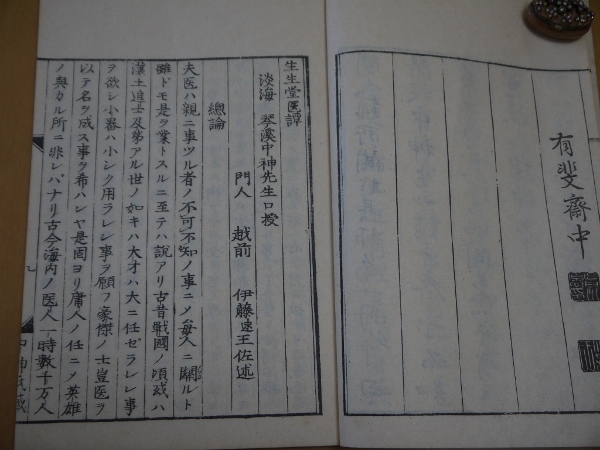 有斐齋中
生生堂医譚
淡海 琴溪中神先生口授
門人 越前 伊藤速王佐述
總論
夫医ハ親ニ事ツル者ノ不可不知ノ事ニノ毎人ニ關ルト
雖ドモ是ヲ業トスルニ至テハ説アリ古昔戰國ノ頃或ハ
漢土進士及第アル世ノ如キハ大才ハ大ニ任ゼラレン事
ヲ欲シ小器ハ小シク用ラレン事ヲ願フ豪傑ノ士豈医ヲ
以テ名ヲ成ス事ヲ希ハンヤ是固ヨリ庸人ノ任ニノ英雄
ノ與カル所ニ非レバナリ古今海内ノ医人一時數千万人